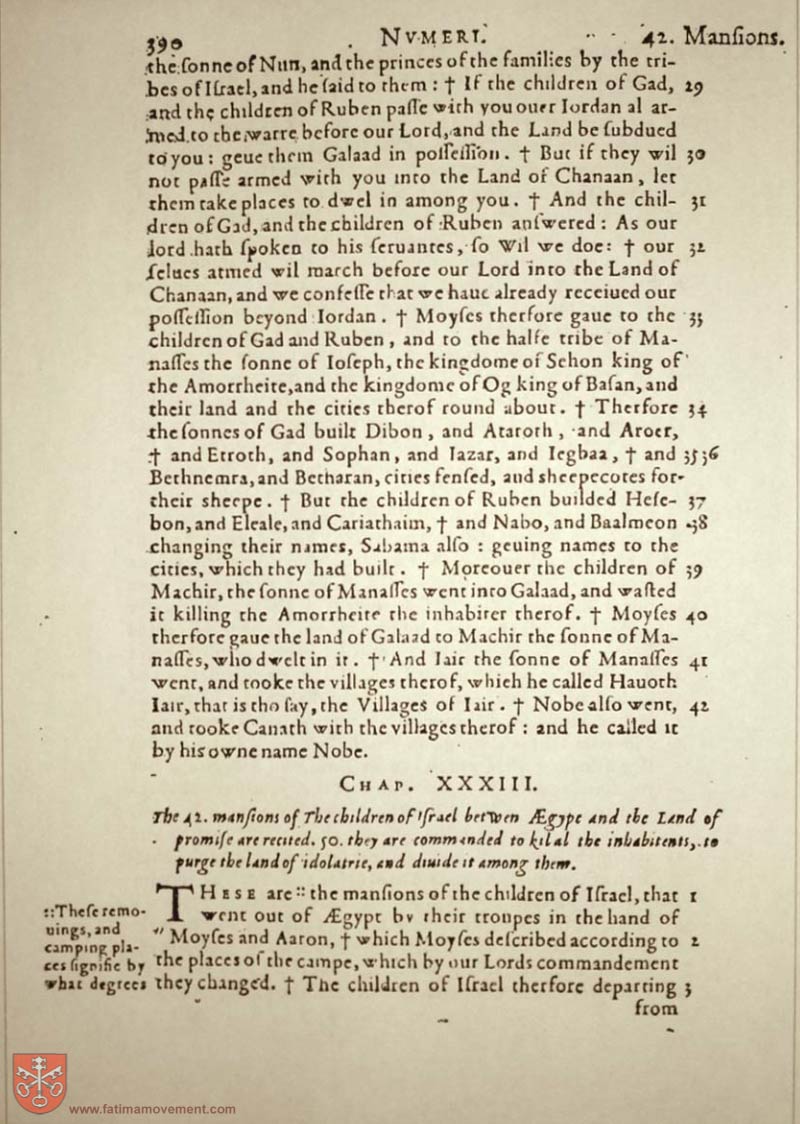 390 NVMERI. 42. Manſions.
the ſonne of Nun, and the princes of the families by the tri-
bes of Iſrael, and he ſaid to them : † If the children of Gad, 29
and the children of Ruben paſſe with you ouer Iordan al ar-
med to the warre before our Lord, and the Land be ſubdued
to you : geue them Galaad in poſſeſſion . † But if they wil 30
not paſſe armed with you into the Land of Chanaan , let
them take places to dwel in among you . † And the chil- 31
dren of Gad, and the children of Ruben anſwered : As our
lord hath ſpoken to his ſeruantes, ſo Wil we doe: † our 32
ſelues armed wil march before our Lord into the Land of
Chanaan, and we confeſſe that we haue already receiued our
poſſeſſion beyond Iordan . † Moyſes therfore gaue to the 33
children of Gad and Ruben , and to the halfe tribe of Ma-
naſſes the ſonne of Ioſeph, the kingdome of Sehon king of
the Amorrheite, and the kingdome of Og king of Baſan, and
their land and the cities therof round about . † Therfore 34
the ſonnes of Gad built Dibon , and Ataroth , and Aroer,
† and Etroth, and Sophan, and Iazar, and Iegbaa, † and 35 36
Bethnemra, and Betharan, cities fenſed, and sheepecotes for
their sheepe . † But the children of Ruben builded Heſe- 37
bon, and Eleale, and Cariathaim, † and Nabo, and Baalmeon 38
changing their names, Sabama alſo : geuing names to the
cities, which they had built . † Moreouer the children of 39
Machir, the ſonne of Manaſſes went into Galaad, and waſted
it killing the Amorrheite the inhabiter therof. † Moyſes 40
therfore gaue the land of Galaad to Machir the ſonne of Ma-
naſſes, who dwelt in it . † And Iair the ſonne of Manaſſes 41
went, and tooke the villages therof, which he called Hauoth
Iair, that is tho ſay, the Villages of Iair . † Nobe alſo went, 42
and tooke Canath with the villages therof : and he called it
by his owne name Nobe.
CHAP. XXXIII.
The 42. manſions of The children of Iſrael betwen Ægypt and the Land of
promiſe are recited. 50. they are commanded to kil al the inhabitents, to
purge the land of idolatrie, and diuide it among them.
THESE are :: the manſions of the children of Iſrael, that 1
went out of Ægypt by their troupes in the hand of
Moyſes and Aaron, † which Moyſes deſcribed according to 2
the places of the campe, which by our Lords commandement
they changed. † The children of Iſrael therfore departing 3
from
:: Theſe remo-
uings, and
camping pla-
ces ſignifie by
what degrees
www.fatimamovement.com